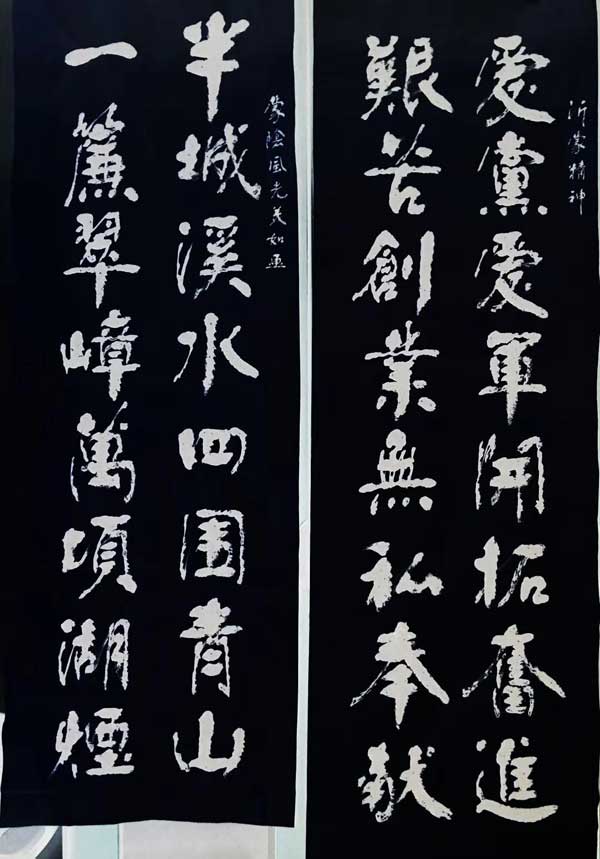 沂蒙精神
愛黨愛軍開拓奮進
艱苦創業無私奉献
蒙陰風光美如画
半城溪水四围青山
一簾翠嶂萬頃湖煙